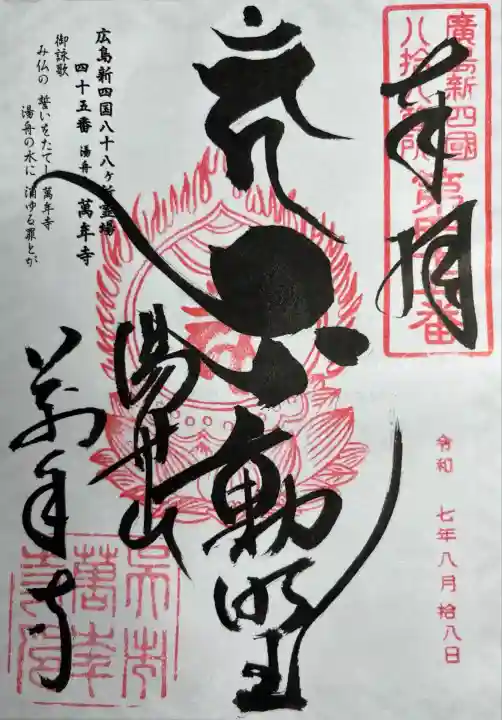 廣島新四國
八拾八箇所第四十五番
奉拝
令和 七年八月拾八日
不動明王
湯舟山
萬年寺
広島新四国八十八ヶ所霊場
四十五番 湯舟 萬年寺
御詠歌
み仏の 誓いをたてし 萬年寺
湯舟の水に 消ゆる罪とが